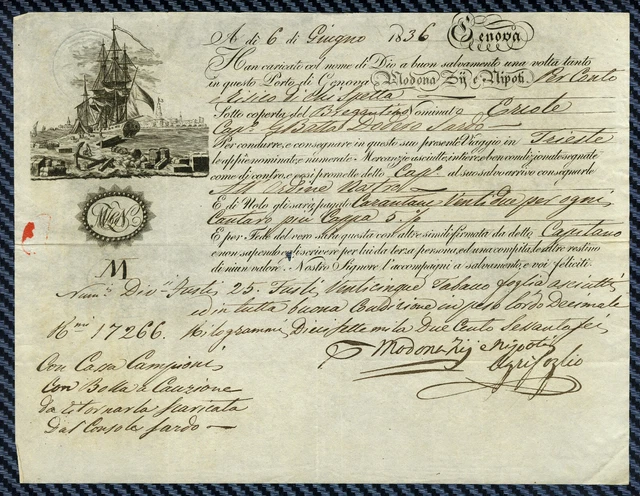 A di 6 di Giugno 1836 Genova
Han caricato col nome di Dio a buon salvamento una volta tanto
in questo Porto di Genova Modona Zij e Nipoti. Per Conto
e Risico di Chi Spetta
Sotto coperta del Brigantino Nominato Ercole
Cap.n GBatta Dodero Sardo
Per condurre, e consegnare in questo suo presente Viaggio in Trieste
le appie nominate, e numerate Mercanzie asciutte, intiere, e ben condizionate segnate
come di contro, e così promette detto Cap.n al suo salvo arrivo consegnarle
All' Ordine Nostro
E di Nolo gli sarà pagato Carantani Ventidue per ogni
Cantaro più Cappa 5 p%
E per Fede del vero sarà questa cost' altre simili firmata da detto Capitano
e non sapendo egli scrivere per lui da terza persona, ed una compita, le altre restino
di niun valore. Nostro Signore l'accompagni a salvamento, e voi feliciti.
M
Num.o Dieci Fusti 25. Fusti Venticinque Tabacco foglia asciutti
ed in tutta buona Condizione in peso lordo Decimale
K.mi 17266. Kilogrammi Diecisette mila Due Cento Sessanta sei
Modona Zij e Nipoti
Con Cassa Campioni
Con Bolla a Cauzione
da ritornarla scaricata
Dal Console Sardo